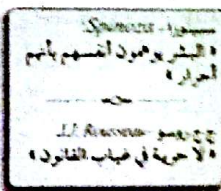 سبينوزا - Spinoza
« البشر يوهمون أنفسهم بأنهم
أحرار »
ج.ج روسو - J.J Rousseau
« لا حرية في غياب القانون »